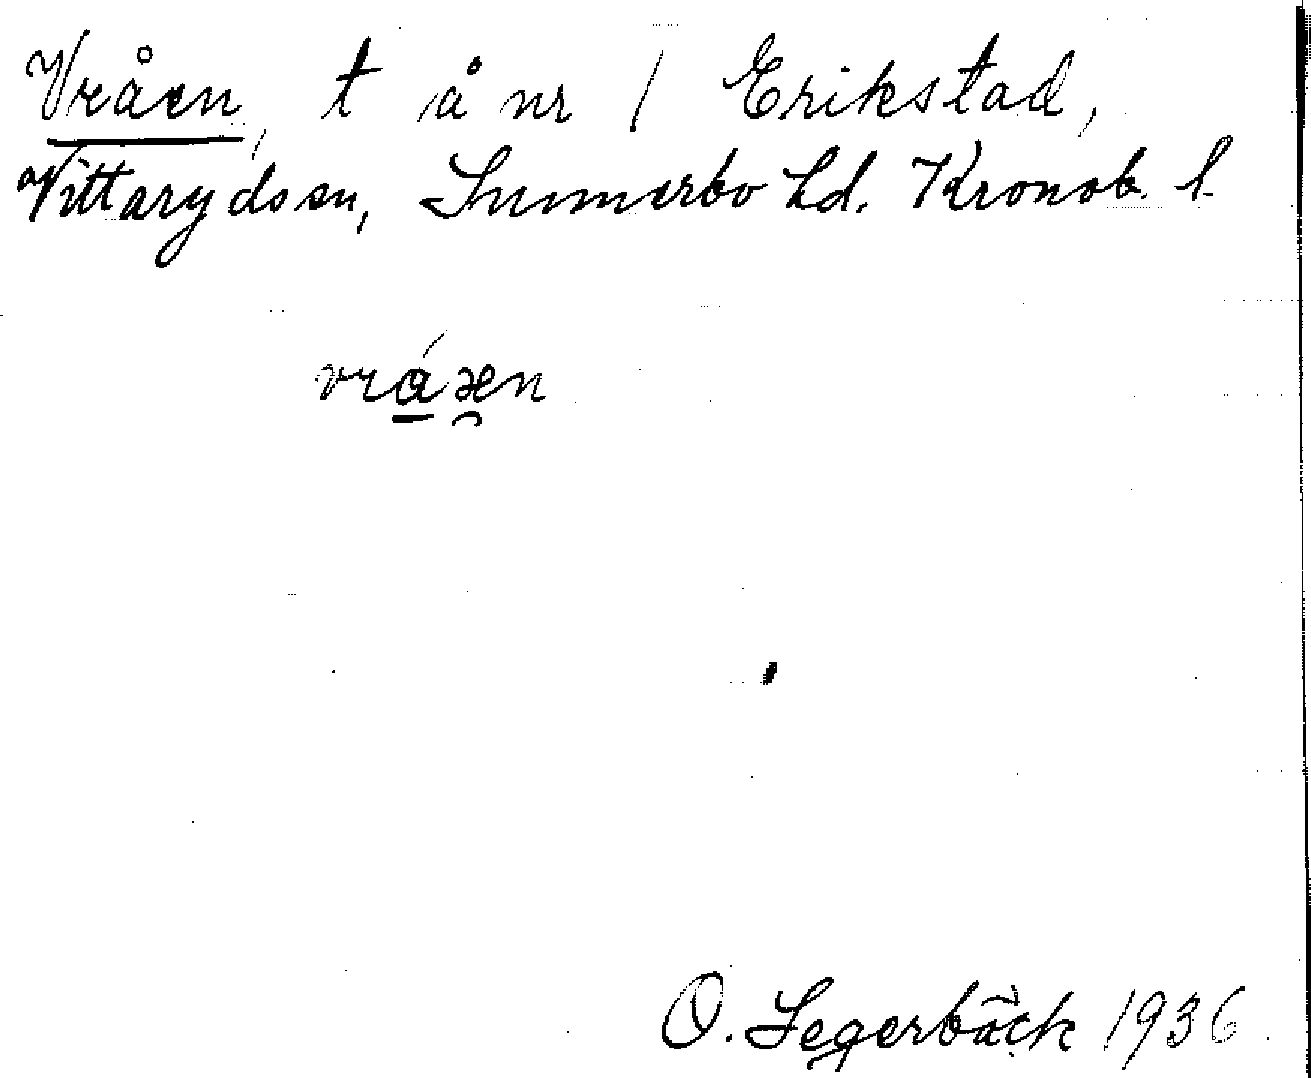 Vråen, t å nr 1 Erikstad,
Vittaryds sn, Sunnerbo hd. Kronob. l.
vrá̱æ̯n
O. Segerbäck 1936